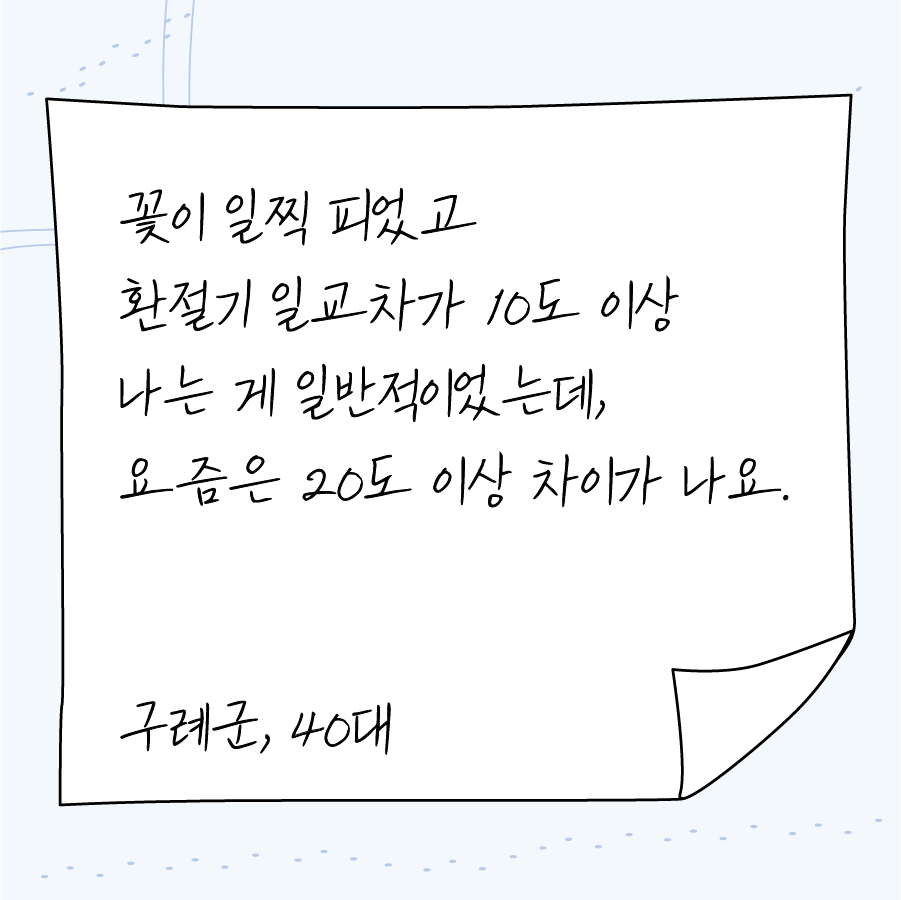 꽃이 일찍 피었고
환절기 일교차가 10도 이상
나는 게 일반적이었는데,
요즘은 20도 이상 차이가 나요.
구례군, 40대